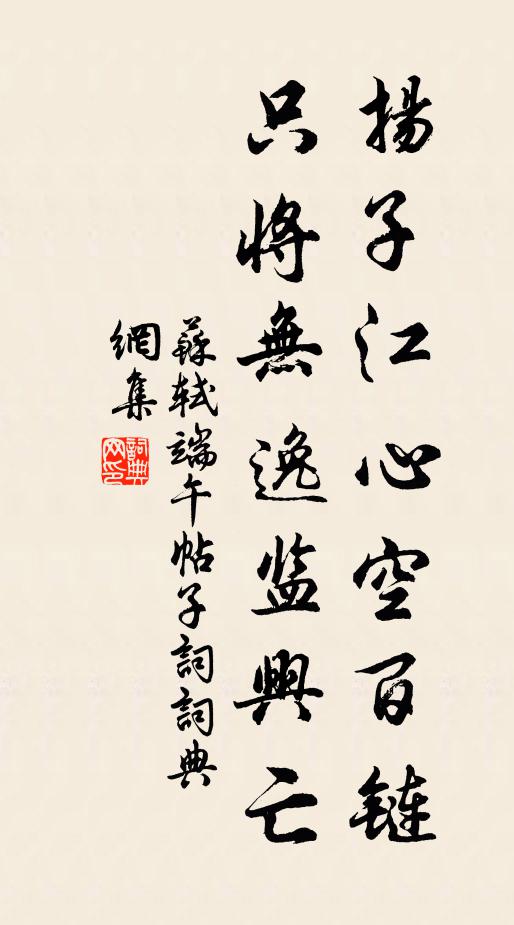 揚子江心空百鏈
只將無逸監興亡
蘇軾端午帖子詞詞典
網集
詞典网印